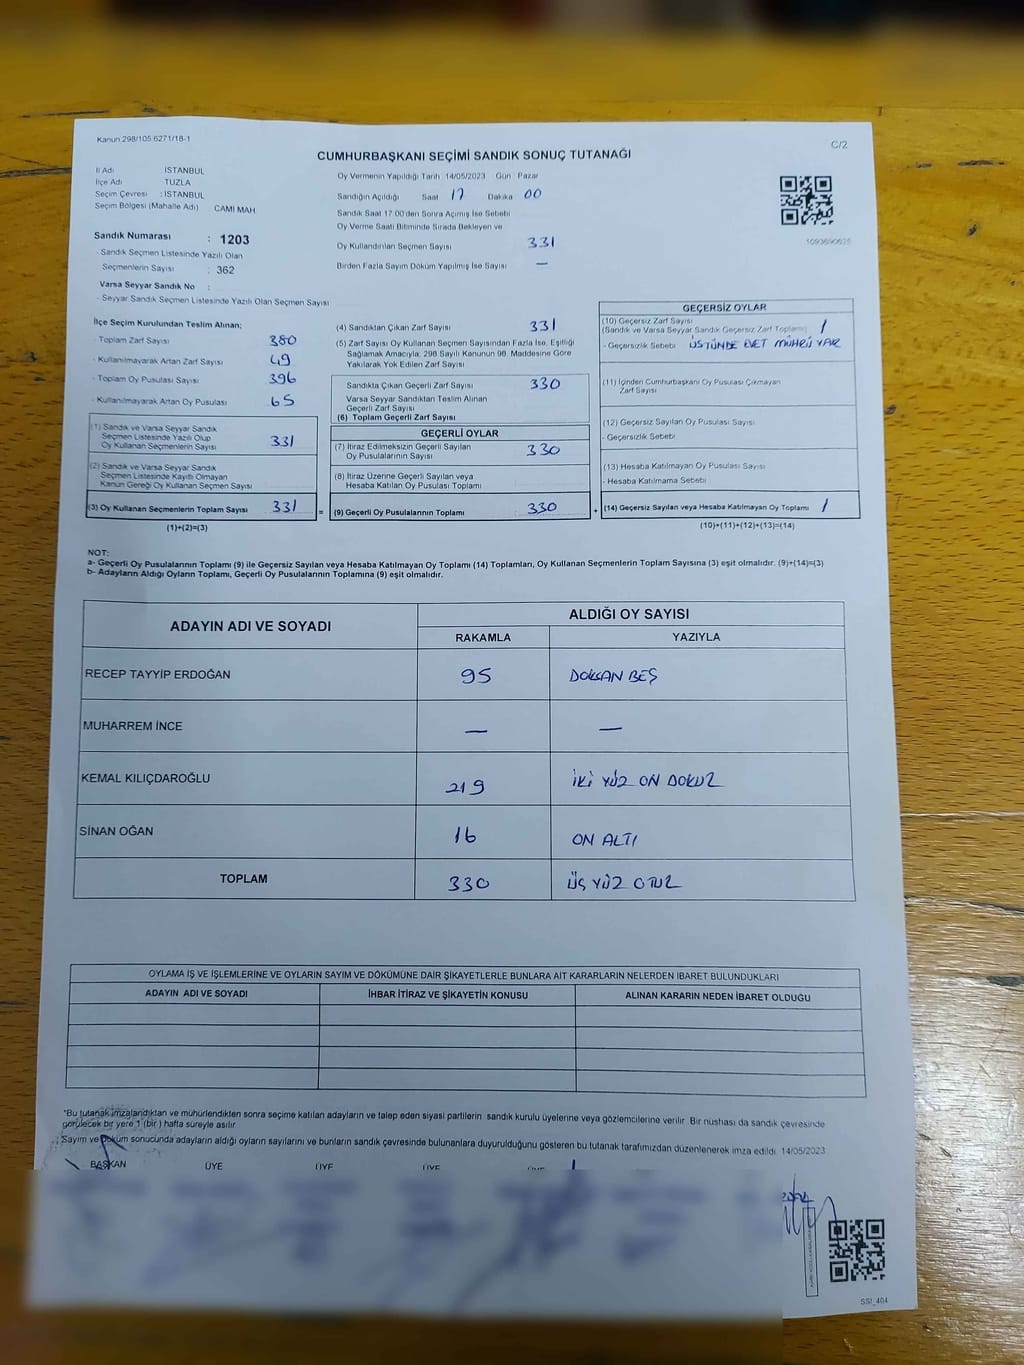 Kanun 298/105 6271/18-1
C/2
CUMHURBAŞKANI SEÇİMİ SANDIK SONUÇ TUTANAĞI
İl Adı İSTANBUL
İlçe Adı TUZLA
Seçim Çevresi : İSTANBUL
Seçim Bölgesi (Mahalle Adı) CAMİ MAH
Sandık Numarası : 1203
- Sandık Seçmen Listesinde Yazılı Olan
Seçmenlerin Sayısı : 362
Varsa Seyyar Sandık No :
- Seyyar Sandık Seçmen Listesinde Yazılı Olan Seçmen Sayısı
Oy Vermenin Yapıldığı Tarih : 14/05/2023 Gün : Pazar
Sandığın Açıldığı Saat 17 Dakika 00
Sandık Saat 17.00'den Sonra Açılmış İse Sebebi
Oy Verme Saati Bitiminde Sırada Bekleyen ve
Oy Kullandırılan Seçmen Sayısı 331
Birden Fazla Sayım Döküm Yapılmış İse Sayısı —
1093690625
İlçe Seçim Kurulundan Teslim Alınan;
Toplam Zarf Sayısı 380
- Kullanılmayarak Artan Zarf Sayısı 49
- Toplam Oy Pusulası Sayısı 396
- Kullanılmayarak Artan Oy Pusulası 65
(1) Sandık ve Varsa Seyyar Sandık
Seçmen Listesinde Yazılı Olup
Oy Kullanan Seçmenlerin Sayısı 331
(2) Sandık ve Varsa Seyyar Sandık
Seçmen Listesinde Kayıtlı Olmayan
Kanun Gereği Oy Kullanan Seçmen Sayısı
(3) Oy Kullanan Seçmenlerin Toplam Sayısı 331 =
(1)+(2)=(3)
(4) Sandıktan Çıkan Zarf Sayısı 331
(5) Zarf Sayısı Oy Kullanan Seçmen Sayısından Fazla İse, Eşitliği
Sağlamak Amacıyla; 298 Sayılı Kanunun 98. Maddesine Göre
Yakılarak Yok Edilen Zarf Sayısı
Sandıkta Çıkan Geçerli Zarf Sayısı 330
Varsa Seyyar Sandıktan Teslim Alınan
Geçerli Zarf Sayısı
(6) Toplam Geçerli Zarf Sayısı
GEÇERLİ OYLAR
(7) İtiraz Edilmeksizin Geçerli Sayılan
Oy Pusulalarının Sayısı 330
(8) İtiraz Üzerine Geçerli Sayılan veya
Hesaba Katılan Oy Pusulası Toplamı
(9) Geçerli Oy Pusulalarının Toplamı 330 +
GEÇERSİZ OYLAR
(10) Geçersiz Zarf Sayısı
(Sandık ve Varsa Seyyar Sandık Geçersiz Zarf Toplamı) 1
- Geçersizlik Sebebi ÜSTÜNDE EVET MÜHRÜ VAR
(11) İçinden Cumhurbaşkanı Oy Pusulası Çıkmayan
Zarf Sayısı
(12) Geçersiz Sayılan Oy Pusulası Sayısı
- Geçersizlik Sebebi
(13) Hesaba Katılmayan Oy Pusulası Sayısı
- Hesaba Katılmama Sebebi
(14) Geçersiz Sayılan veya Hesaba Katılmayan Oy Toplamı 1
(10)+(11)+(12)+(13)=(14)
NOT:
a- Geçerli Oy Pusulalarının Toplamı (9) ile Geçersiz Sayılan veya Hesaba Katılmayan Oy Toplamı (14) Toplamları, Oy Kullanan Seçmenlerin Toplam Sayısına (3) eşit olmalıdır. (9)+(14)=(3)
b- Adayların Aldığı Oyların Toplamı, Geçerli Oy Pusulalarının Toplamına (9) eşit olmalıdır.
ADAYIN ADI VE SOYADI ALDIĞI OY SAYISI
RAKAMLA YAZIYLA
RECEP TAYYİP ERDOĞAN 95 DOKSAN BEŞ
MUHARREM İNCE — —
KEMAL KILIÇDAROĞLU 219 İKİ YÜZ ON DOKUZ
SİNAN OĞAN 16 ON ALTI
TOPLAM 330 ÜÇ YÜZ OTUZ
OYLAMA İŞ VE İŞLEMLERİNE VE OYLARIN SAYIM VE DÖKÜMÜNE DAİR ŞİKAYETLERLE BUNLARA AİT KARARLARIN NELERDEN İBARET BULUNDUKLARI
ADAYIN ADI VE SOYADI İHBAR İTİRAZ VE ŞİKAYETİN KONUSU ALINAN KARARIN NEDEN İBARET OLDUĞU
*Bu tutanak imzalandıktan ve mühürlendikten sonra seçime katılan adayların ve talep eden siyasi partilerin sandık kurulu üyelerine veya gözlemcilerine verilir. Bir nüshası da sandık çevresinde
görülecek bir yere 1 (bir) hafta süreyle asılır.
Sayım ve döküm sonucunda adayların aldığı oyların sayılarını ve bunların sandık çevresinde bulunanlara duyurulduğunu gösteren bu tutanak tarafımızdan düzenlenerek imza edildi. 14/05/2023
BAŞKAN ÜYE ÜYE ÜYE ÜYE
SSI_404